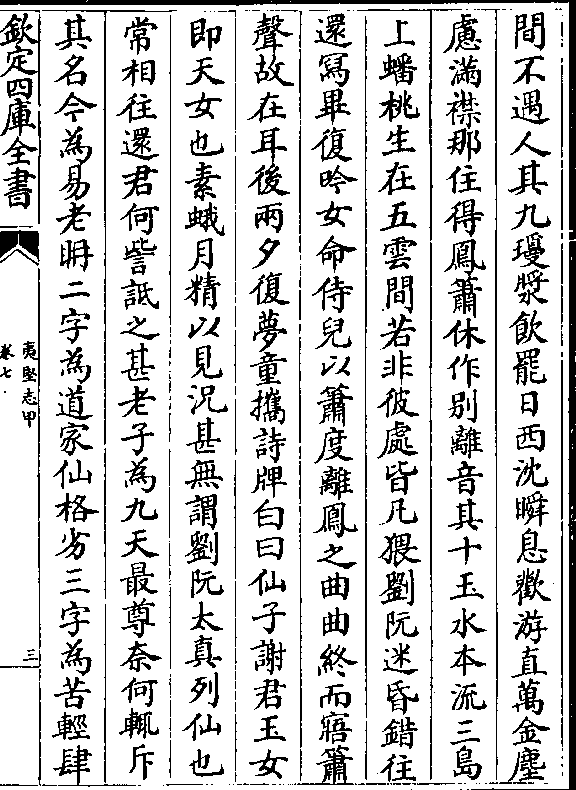 間不遇人其九瓊漿飲罷日西沈瞬息歡游直萬金塵
慮滿襟那住得鳳簫休作別離音其十玉水本流三島
上蟠桃生在五雲間若非彼處皆凡猥劉阮迷昏錯往
還冩畢復吟女命侍兒以簫度離鳳之曲曲終而寤簫
聲故在耳後兩夕復夢童攜詩牌白曰仙子謝君玉女
即天女也素蛾月精以見况甚無謂劉阮太真列仙也
常相往還君何訾詆之甚老子為九天最尊奈何輒斥
其名今為易老耼二字為道家仙格劣三字為苦輕肆
欽定四庫全書
夷堅志甲
卷七
三